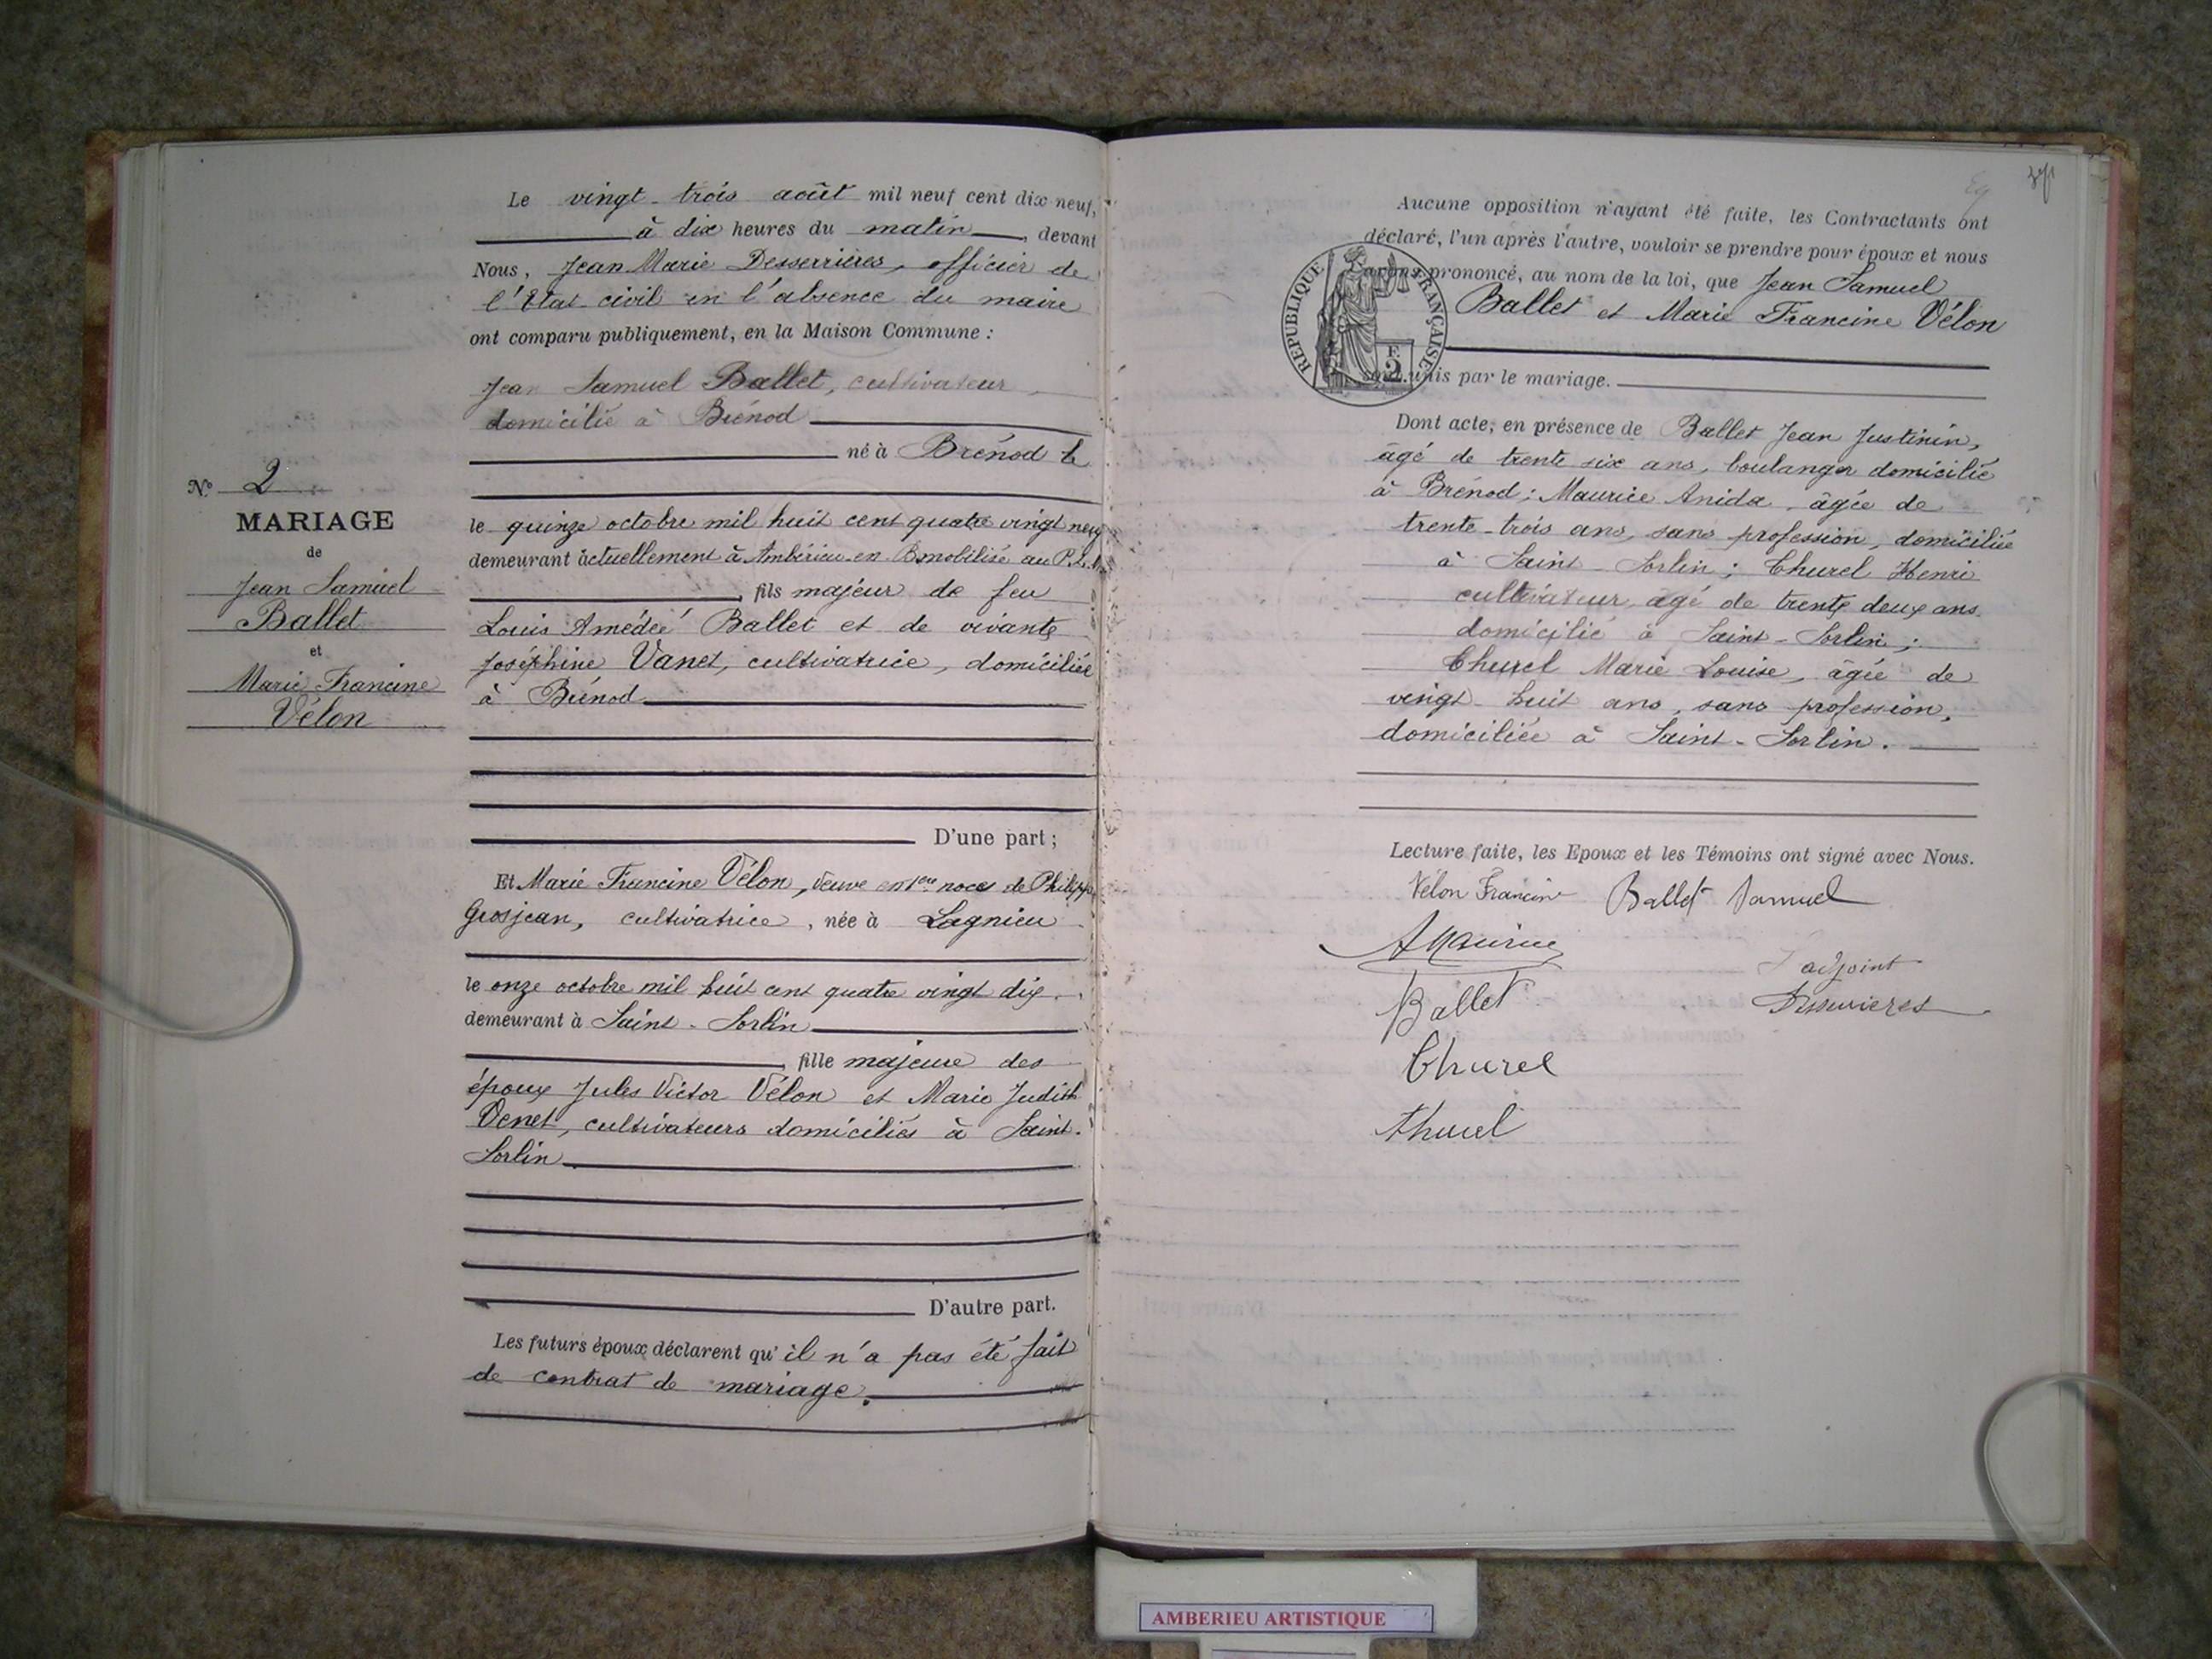 Le vingt-trois août mil neuf cent dix-neuf,
à dix heures du matin, devant
Nous, Jean Marie Desserrières, officier de
l'Etat-civil en l'absence du maire
ont comparu publiquement, en la Maison Commune :
Jean Samuel Ballet, cultivateur,
domicilié à Brénod
né à Brénod le
le quinze octobre mil huit cent quatre vingt neuf
demeurant actuellement à Ambérieu-en-B mobilisé au P.L.M.
fils majeur de feu
Louis Amédée Ballet et de vivante
Joséphine Vanet, cultivatrice, domiciliée
à Brénod
D'une part ;
N° 2
MARIAGE
de
Jean Samuel
Ballet
et
Marie Francine
Vélon
Et Marie Francine Vélon, veuve en 1ères noces de Philippe
Grosjean, cultivatrice, née à Lagnieu
le onze octobre mil huit cent quatre vingt dix,
demeurant à Saint-Sorlin
fille majeure des
époux Jules Victor Vélon et Marie Judith
Venet, cultivateurs domiciliés à Saint-
Sorlin
D'autre part.
Les futurs époux déclarent qu'il n'a pas été fait
de contrat de mariage.
Aucune opposition n'ayant été faite, les Contractants ont
déclaré, l'un après l'autre, vouloir se prendre pour époux et nous
avons prononcé, au nom de la loi, que Jean Samuel
Ballet et Marie Francine Vélon
sont unis par le mariage.
REPUBLIQUE FRANÇAISE
F.
2
Dont acte, en présence de Ballet Jean Justinin,
âgé de trente six ans, boulanger domicilié
à Brénod ; Maurice Anida, âgée de
trente-trois ans, sans profession, domiciliée
à Saint-Sorlin ; Thurel Henri
cultivateur, âgé de trente deux ans
domicilié à Saint-Sorlin ;
Thurel Marie Louise, âgée de
vingt-huit ans, sans profession,
domiciliée à Saint-Sorlin.
Lecture faite, les Epoux et les Témoins ont signé avec Nous.
Vélon Francine Ballet Samuel
A Maurice
L'adjoint
Ballet
Desserrières
Thurel
Thurel
AMBERIEU ARTISTIQUE